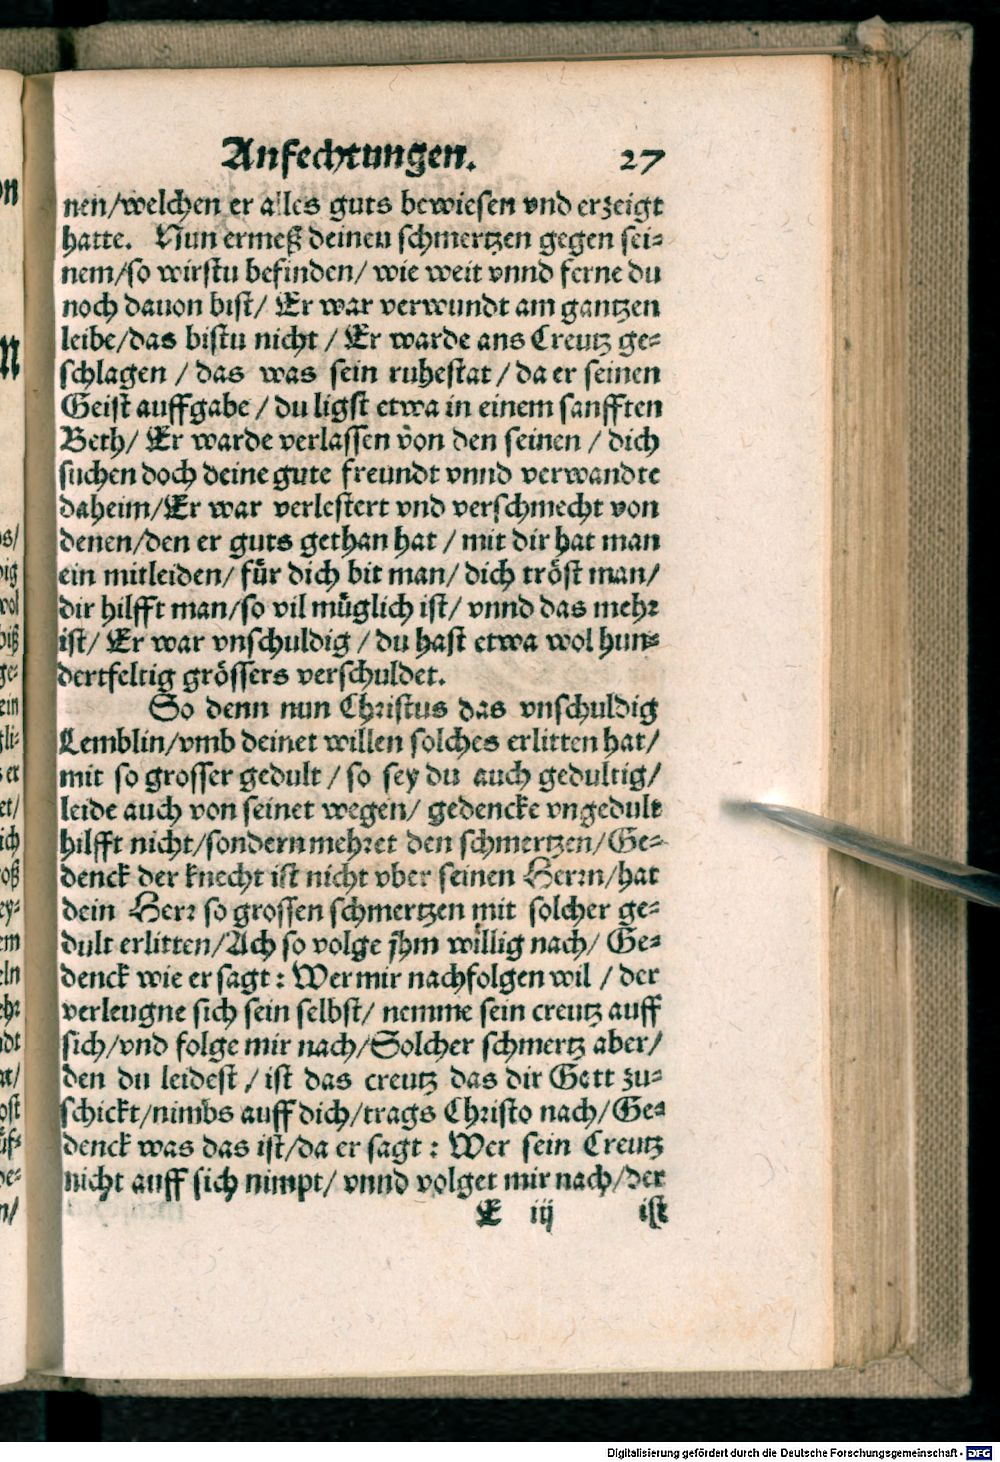 Anfechtungen. 27
nen/welchen er alles guts bewiesen vnd erzeigt
hatte. Nun ermeß deinen schmertzen gegen sei-
nem/so wirstu befinden/ wie weit vnnd ferne du
noch dauon bist/ Er war verwundt am gantzen
leibe/das bistu nicht / Er warde ans Creutz ge-
schlagen / das was sein ruhestat / da er seinen
Geist auffgabe / du ligst etwa in einem sanfften
Beth/ Er warde verlassen von den seinen / dich
suchen doch deine gute freundt vnnd verwandte
daheim/Er war verlestert vnd verschmecht von
denen/den er guts gethan hat / mit dir hat man
ein mitleiden/ für dich bit man/ dich tröst man/
dir hilfft man/so vil müglich ist/ vnnd das mehr
ist/ Er war vnschuldig / du hast etwa wol hun-
dertfeltig grössers verschuldet.
So denn nun Christus das vnschuldig
Lemblin/vmb deinet willen solches erlitten hat/
mit so grosser gedult / so sey du auch gedultig/
leide auch von seinet wegen/ gedencke vngedult
hilfft nicht/sondern mehret den schmertzen/Ge-
denck der knecht ist nicht vber seinen Herrn/hat
dein Herr so grossen schmertzen mit solcher ge-
dult erlitten/Ach so volge jhm willig nach/ Ge-
denck wie er sagt: Wer mir nachfolgen wil / der
verleugne sich sein selbst/ nemme sein creutz auff
sich/vnd folge mir nach/Solcher schmertz aber/
den du leidest / ist das creutz das dir Gott zu-
schickt/nimbs auff dich/trags Christo nach/Ge-
denck was das ist/da er sagt : Wer sein Creutz
nicht auff sich nimpt/ vnnd volget mir nach/der
E iij ist
Digitalisierung gefördert durch die Deutsche Forschungsgemeinschaft - DFG